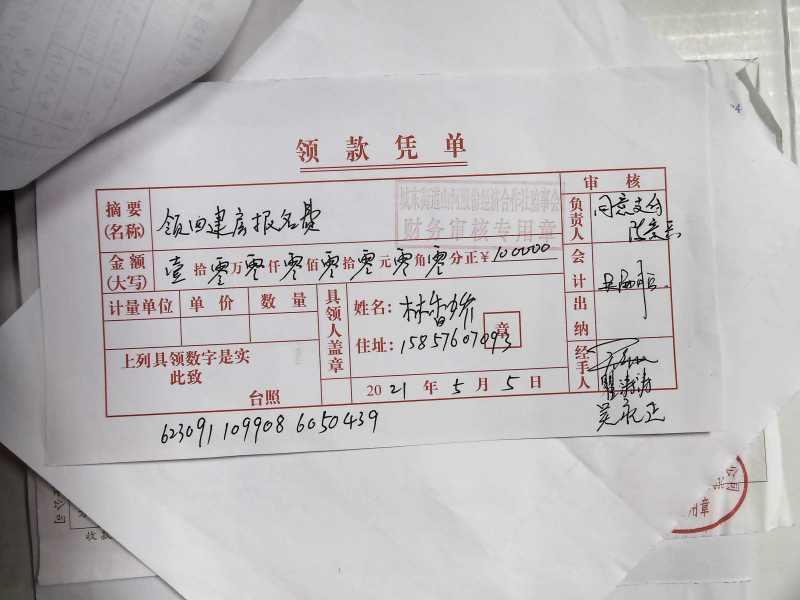 领款凭单
摘要(名称) 领回建房报名费
城东街道山河股份经济合作社监事会
财务审核专用章
审核
负责人 同意支付
金额(大写) 壹拾零万零仟零佰零拾零元零角零分正¥100000
会计
计量单位 单价 数量
具领人盖章
姓名:林香娇
章
住址:15857607093
出纳
上列具领数字是实
此致
台照
2021年5月5日
经手人
吴永正
623091 109908 6050439
用章
收款